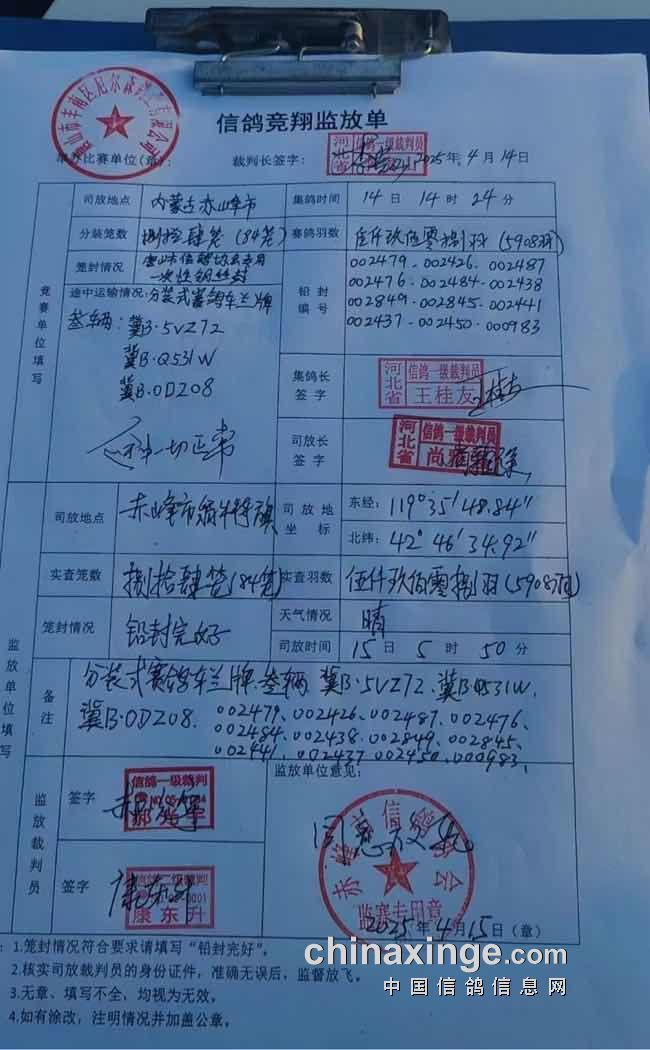 信鸽竞翔监放单
举办比赛单位(章): 裁判长签字: 2025年4月14日
河北省 信鸽一级裁判员
竞赛单位填写
司放地点 内蒙古赤峰市 集鸽时间 14日14时24分
分装笼数 捌拾肆笼(84笼) 赛鸽羽数 伍仟玖佰零捌羽(5908羽)
笼封情况 唐山市信鸽协会专用
一次性钢丝封
铅封编号 002479、002426、002487
002476、002484、002438
002849、002845、002441
002437、002450、000983
途中运输情况:分装式赛鸽车兰牌
叁辆:冀B·5VZ72
冀B·Q531W
冀B·0DZ08
一切正常
集鸽长签字 河北省 信鸽一级裁判员 王桂友 王桂友
司放长签字 河北省 信鸽一级裁判员
监放单位填写
司放地点 赤峰市翁牛特旗 司放地坐标 东经: 119°35′48.84″
北纬: 42°46′34.92″
实查笼数 捌拾肆笼(84笼) 实查羽数 伍仟玖佰零捌羽(5908羽)
笼封情况 铅封完好 天气情况 晴
司放时间 15日5时50分
备注 分装式赛鸽车兰牌叁辆 冀B·5VZ72、冀B·Q531W、
冀B·0DZ08、002479、002426、002487、002476、
002484、002438、002849、002845、
002441、002437、002450、000983、
监放裁判员
签字 信鸽一级裁判
签字 康东升 康东升
监放单位意见:
同意放飞
赤峰市信鸽协会
监赛专用章
2025年4月15日(章)
: 1.笼封情况符合要求请填写“铅封完好”。
2.核实司放裁判员的身份证件,准确无误后,监督放飞。
3.无章、填写不全,均视为无效。
4.如有涂改,注明情况并加盖公章。
chinaxinge.com
中国信鸽信息网